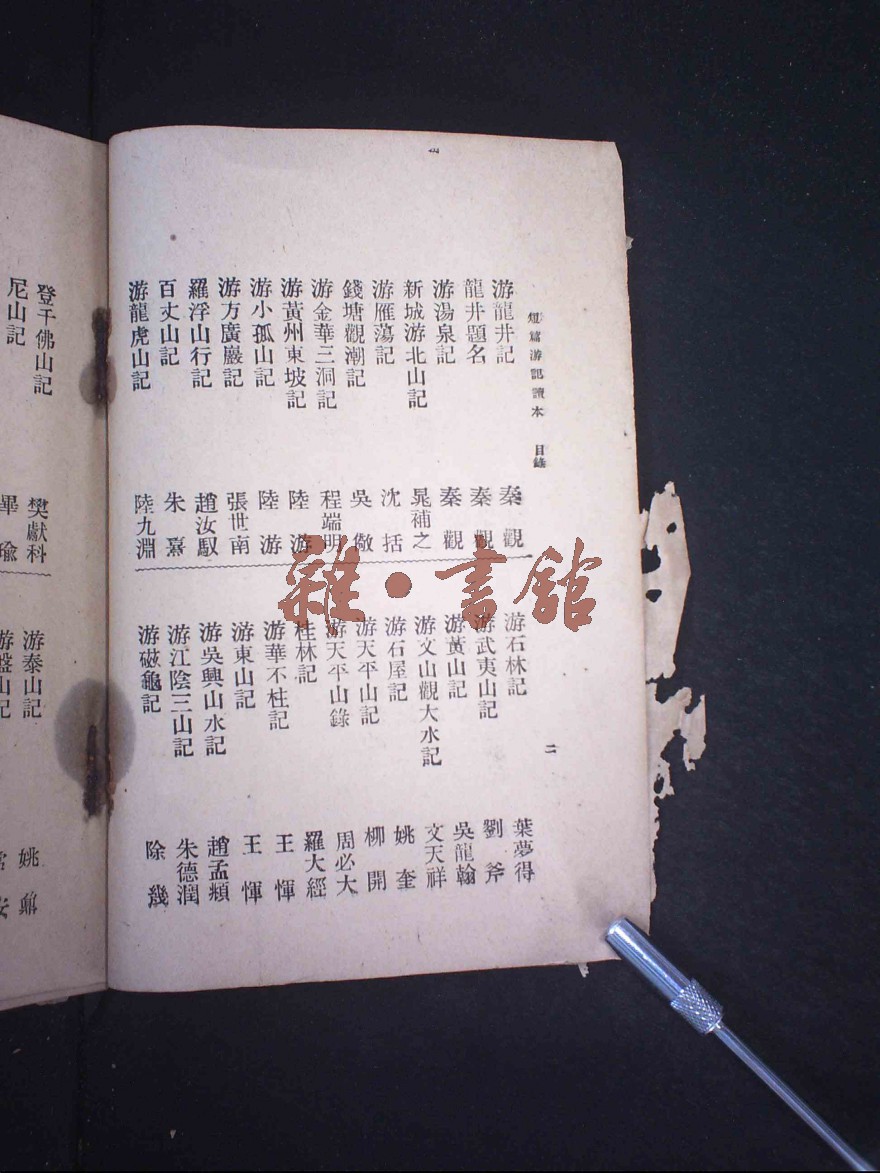 短篇游記讀本 目錄
二
游龍井記 秦觀
龍井題名 秦觀
游湯泉記 秦觀
新城游北山記 晁補之
游雁蕩記 沈括
錢塘觀潮記 吳儆
游金華三洞記 程端明
游黃州東坡記 陸游
游小孤山記 陸游
游方廣巖記 張世南
羅浮山行記 趙汝馭
百丈山記 朱熹
游龍虎山記 陸九淵
游石林記 葉夢得
游武夷山記 劉斧
游黃山記 吳龍翰
游文山觀大水記 文天祥
游石屋記 姚奎
游天平山記 柳開
游天平山錄 周必大
桂林記 羅大經
游華不柱記 王惲
游東山記 王惲
游吳興山水記 趙孟頫
游江陰三山記 朱德潤
游磁龜記 除幾
登千佛山記 樊獻科
尼山記 畢瑜
游泰山記 姚鼐
游盤山記
雜·書館